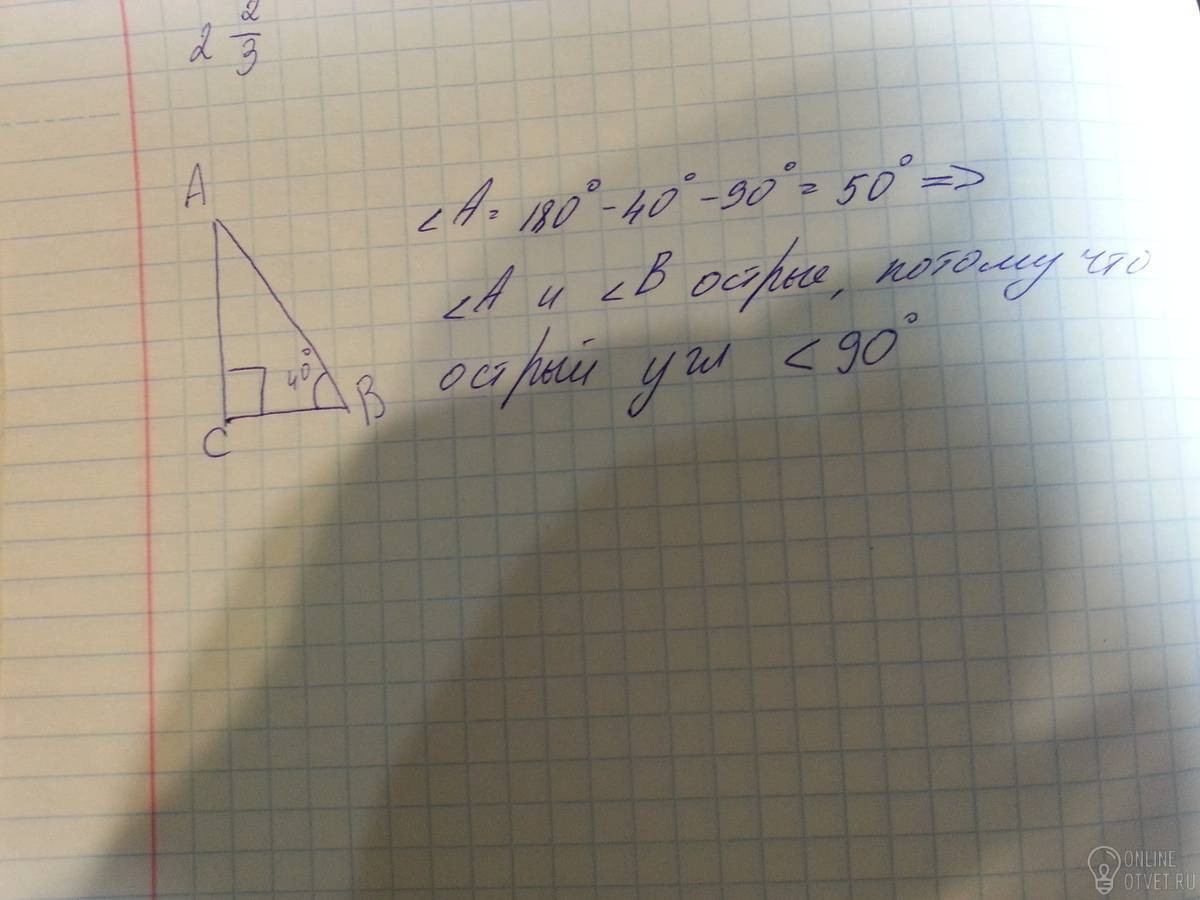 2 2/3
A
∠A = 180° - 40° - 90° = 50° =>
∠A и ∠B острые, потому что
острый угл < 90°
40°
B
C
ONLINE
OTVET.RU